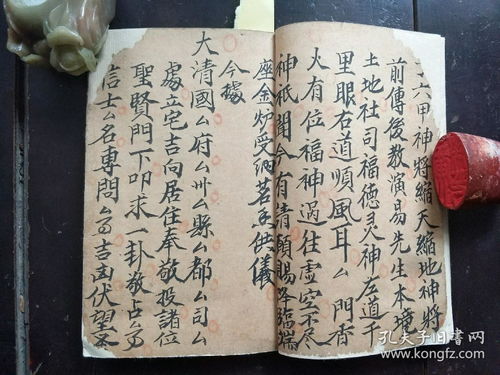 六甲神將縮天縮地神將
前傳後教演易先生本境
土地社司福德灵神左道千
里眼右道順風耳厶門香
火有位福神過往虛空不尽
神祇聞今有請願賜降臨端
座金炉受納茗香供儀
今據
大清國厶府厶州厶縣厶都厶司厶
處立宅吉向居住奉敬投諸位
聖賢門下叩求一卦敬占厶為
信士厶名專問厶為吉凶伏望
孔夫子旧书网
www.kongfz.com